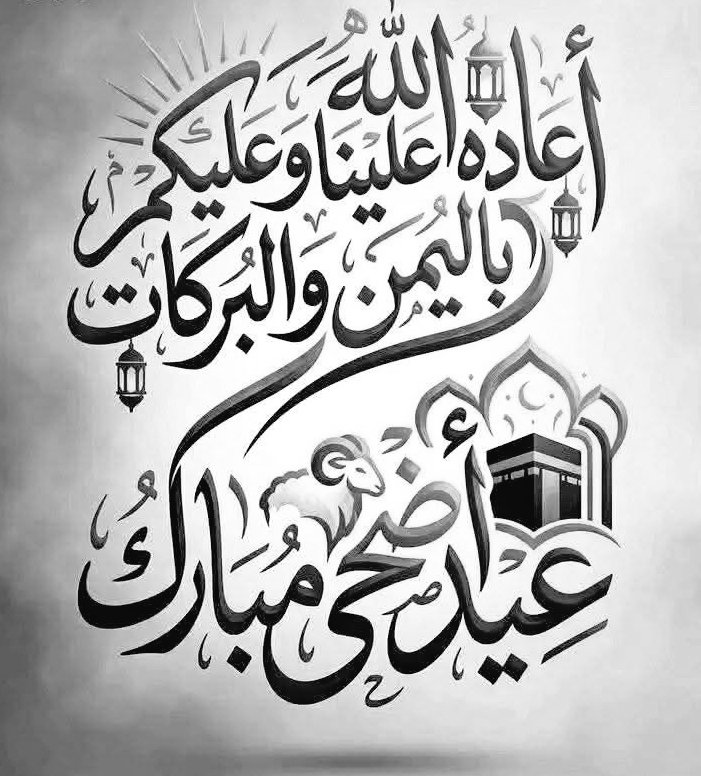 أَعَاده الله اعَلينَا وَعَليكم
باليُمن وَالبُركَات
عِيد أضحى مبَارك